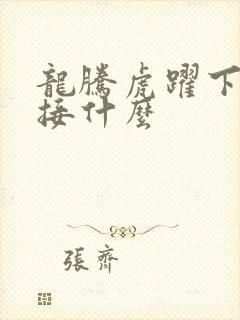 龍騰虎躍下
接什麼
張齊